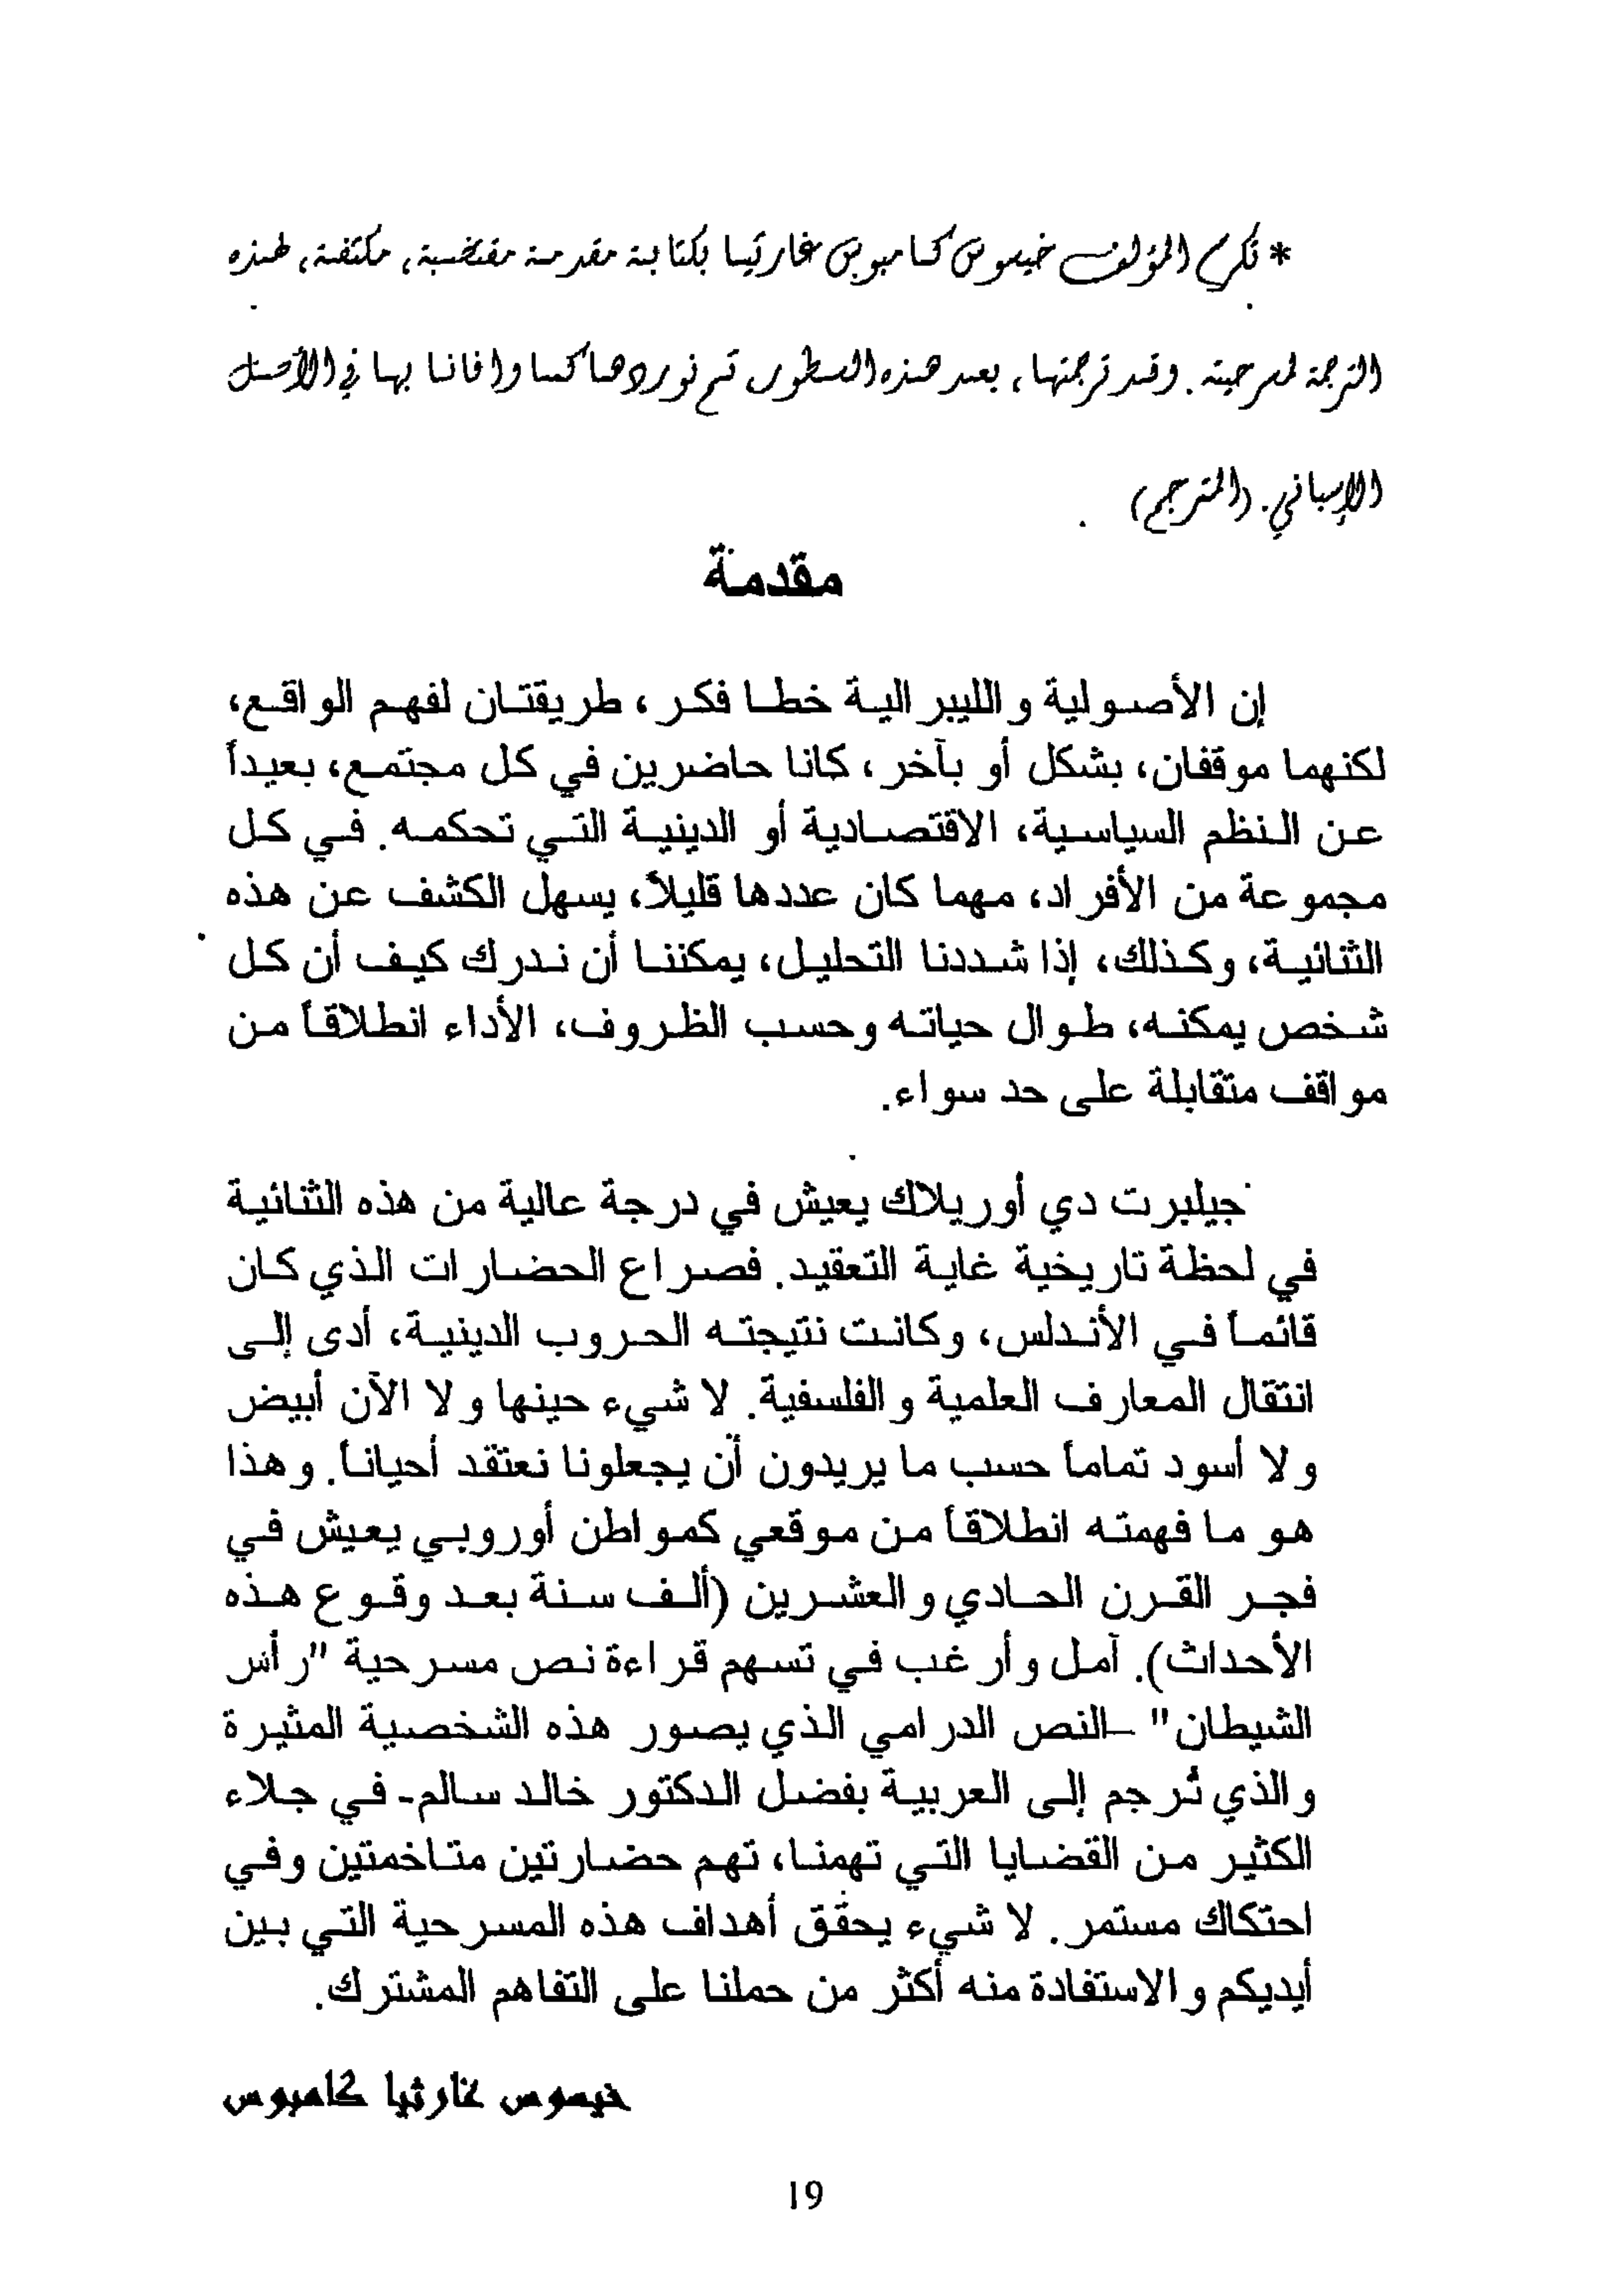 * تكرم المؤلف خيسوس كامبوس غارثيا بكتابة مقدمة مقتضبة، مكثفة، لهذه
الترجمة لمسرحيته. وقد ترجمتها، بعد هذه السطور، ثم نوردها كما وافانا بها في الأصل
الإسباني. (المترجم)
مقدمة
إن الأصولية والليبرالية خطا فكر، طريقتان لفهم الواقع،
لكنهما موقفان، بشكل أو بآخر، كانا حاضرين في كل مجتمع، بعيداً
عن النظم السياسية، الاقتصادية أو الدينية التي تحكمه. في كل
مجموعة من الأفراد، مهما كان عددها قليلاً، يسهل الكشف عن هذه
الثنائية، وكذلك، إذا شددنا التحليل، يمكننا أن ندرك كيف أن كل
شخص يمكنه، طوال حياته وحسب الظروف، الأداء انطلاقاً من
مواقف متقابلة على حد سواء.
جيلبرت دي أوريلاك يعيش في درجة عالية من هذه الثنائية
في لحظة تاريخية غاية التعقيد. فصراع الحضارات الذي كان
قائماً في الأندلس، وكانت نتيجته الحروب الدينية، أدى إلى
انتقال المعارف العلمية والفلسفية. لا شيء حينها ولا الآن أبيض
ولا أسود تماماً حسب ما يريدون أن يجعلونا نعتقد أحياناً. وهذا
هو ما فهمته انطلاقاً من موقعي كمواطن أوروبي يعيش في
فجر القرن الحادي والعشرين (ألف سنة بعد وقوع هذه
الأحداث). آمل وأرغب في تسهم قراءة نص مسرحية "رأس
الشيطان" –النص الدرامي الذي يصور هذه الشخصية المثيرة
والذي تُرجم إلى العربية بفضل الدكتور خالد سالم- في جلاء
الكثير من القضايا التي تهمنا، تهم حضارتين متاخمتين وفي
احتكاك مستمر. لا شيء يحقق أهداف هذه المسرحية التي بين
أيديكم والاستفادة منه أكثر من حملنا على التفاهم المشترك.
خيسوس غارثيا كامبوس
19